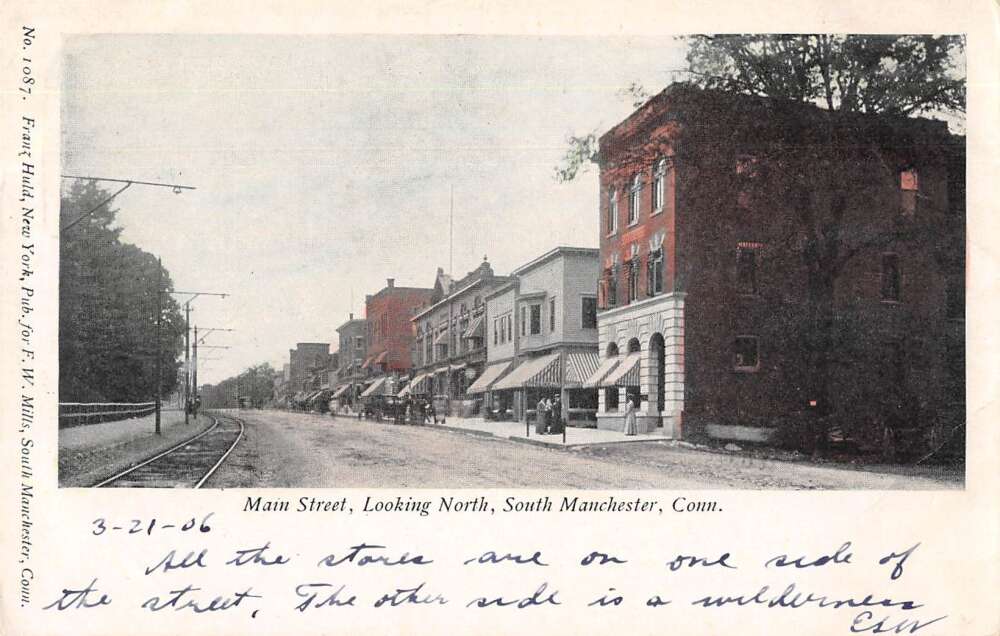 No. 1087. Franz Huld, New York, Pub. for F. W. Mills, South Manchester, Conn.
Main Street, Looking North, South Manchester, Conn.
3-21-06
All the stores are on one side of
the street, The other side is a wilderness
ESW